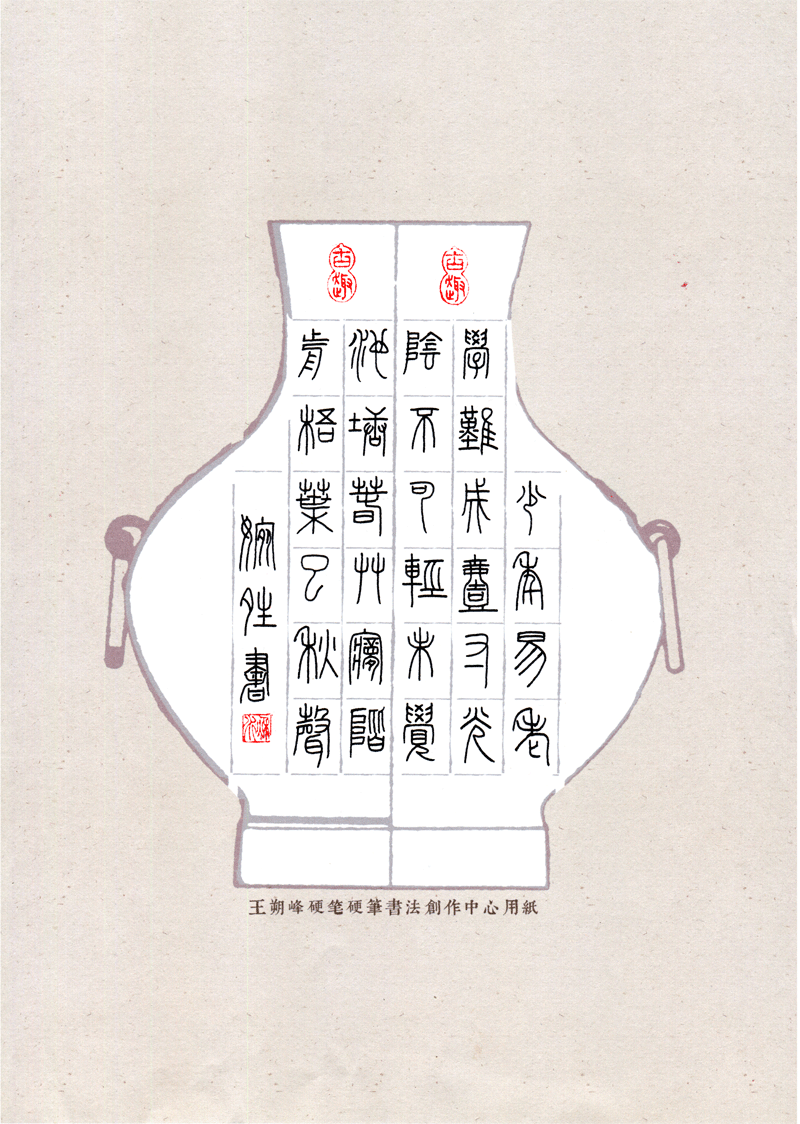 古趣
古趣
少年易老
學難成壹寸光
陰不可輕未覺
池塘春艸夢階
前梧葉已秋聲
書
王朔峰硬笔硬筆書法創作中心用紙